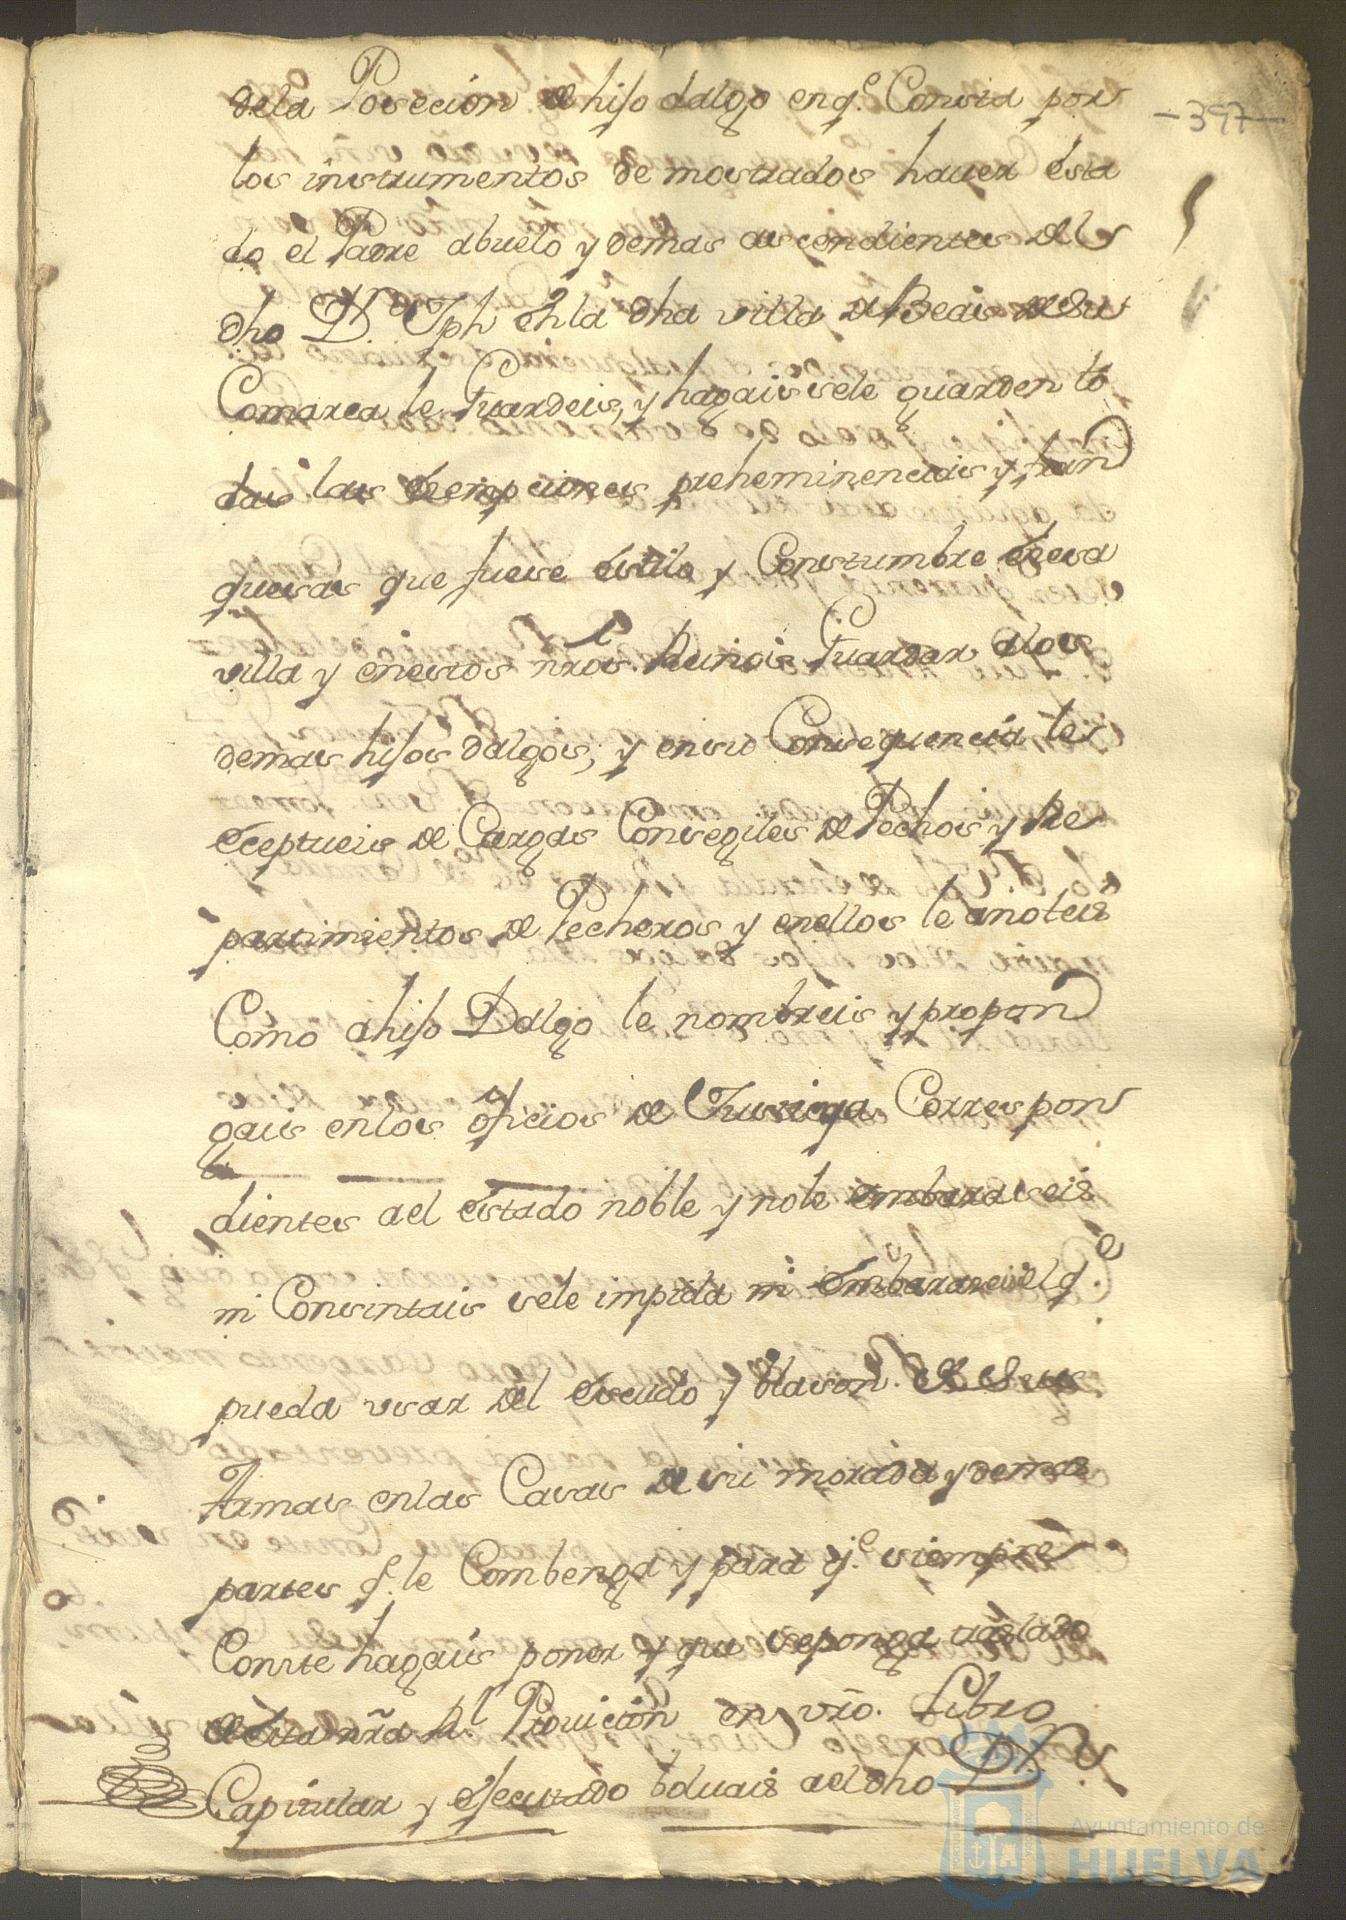 -397-
dela Poseción de hijo dalgo en q.e Consta por
los instrumentos demostrados hauer esta
do el Padre abuelo y demas ascendientes del
dho D.n Jph en la dha villa de Beas de su
Comarca le Guardeis, y hagais sele guarden to
das las Exempciones preheminencias y fran
quesas que fuese estilo y Constumbre en esa
villa y en estos nros. Reinos Guardar alos
demas hijos dalgos; y en su Consequencia le
exceptueis de Cargas Consegiles de Pechos y Re
partimientos de Pecheros y enellos le anoteis
Como a hijo Dalgo le nombreis y propon
gais enlos oficios de Justicia Correspon
dientes ael estado noble y nole embaraseis
ni Consintais sele impida ni Embarase el q.e
pueda usar del Escudo y blason de sus
Armas enlas Casas de su morada y demas
partes q.e le Combenga y para q.e siempre
Conste hagais poner y que se ponga traslado
de esta nrã R.l Prouición en vrõ. Libro
Capitular y efecutado boluais ael dho D.n
Ayuntamiento de
HUELVA